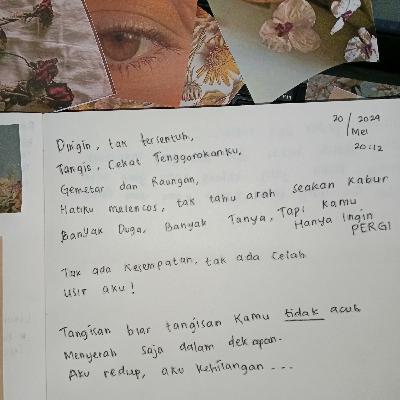 20 / 2024
Mei
20:12
Dingin, tak tersentuh,
Tangis, Cekat Tenggorokanku,
Gemetar dan Raungan,
Hatiku melencos, tak tahu arah seakan kabur
Banyak Duga, Banyak Tanya, Tapi kamu
Hanya Ingin
PERGI
Tak ada kesempatan, tak ada celah
usir aku!
Tangisan biar tangisan kamu tidak acuh
Menyerah saja dalam dekapan.
Aku redup, aku kehilangan ---